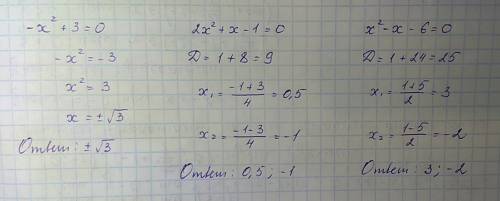 -x² + 3 = 0
-x² = -3
x² = 3
x = ±√3
Ответ: ±√3
2x² + x - 1 = 0
D = 1 + 8 = 9
x₁ = (-1+3)/4 = 0,5
x₂ = (-1-3)/4 = -1
Ответ: 0,5 ; -1
x² - x - 6 = 0
D = 1 + 24 = 25
x₁ = (1+5)/2 = 3
x₂ = (1-5)/2 = -2
Ответ: 3 ; -2